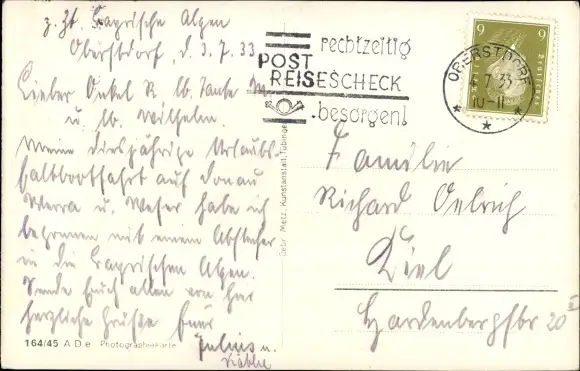 z. Zt. Bayrische Alpen
Oberstdorf, d. 3.7.33
Lieber Onkel R. lb. Tante M
u. lb. Wilhelm.
Meine diesjährige Urlaubs-
faltbootfahrt auf Donau
Werra u. Weser habe ich
begonnen mit einem Abstecher
in die Bayrischen Alpen.
Sende Euch allen von hier
herzliche Grüße Euer
Julius u.
164/45 A D e Photographiekarte
Gebr. Metz, Kunstanstalt, Tübingen
rechtzeitig
POST
REISESCHECK
besorgen!
OBERSTDORF
7.33
10-11
9 9
Familie
Richard Oelrich
Kiel
Hardenbergstr 20